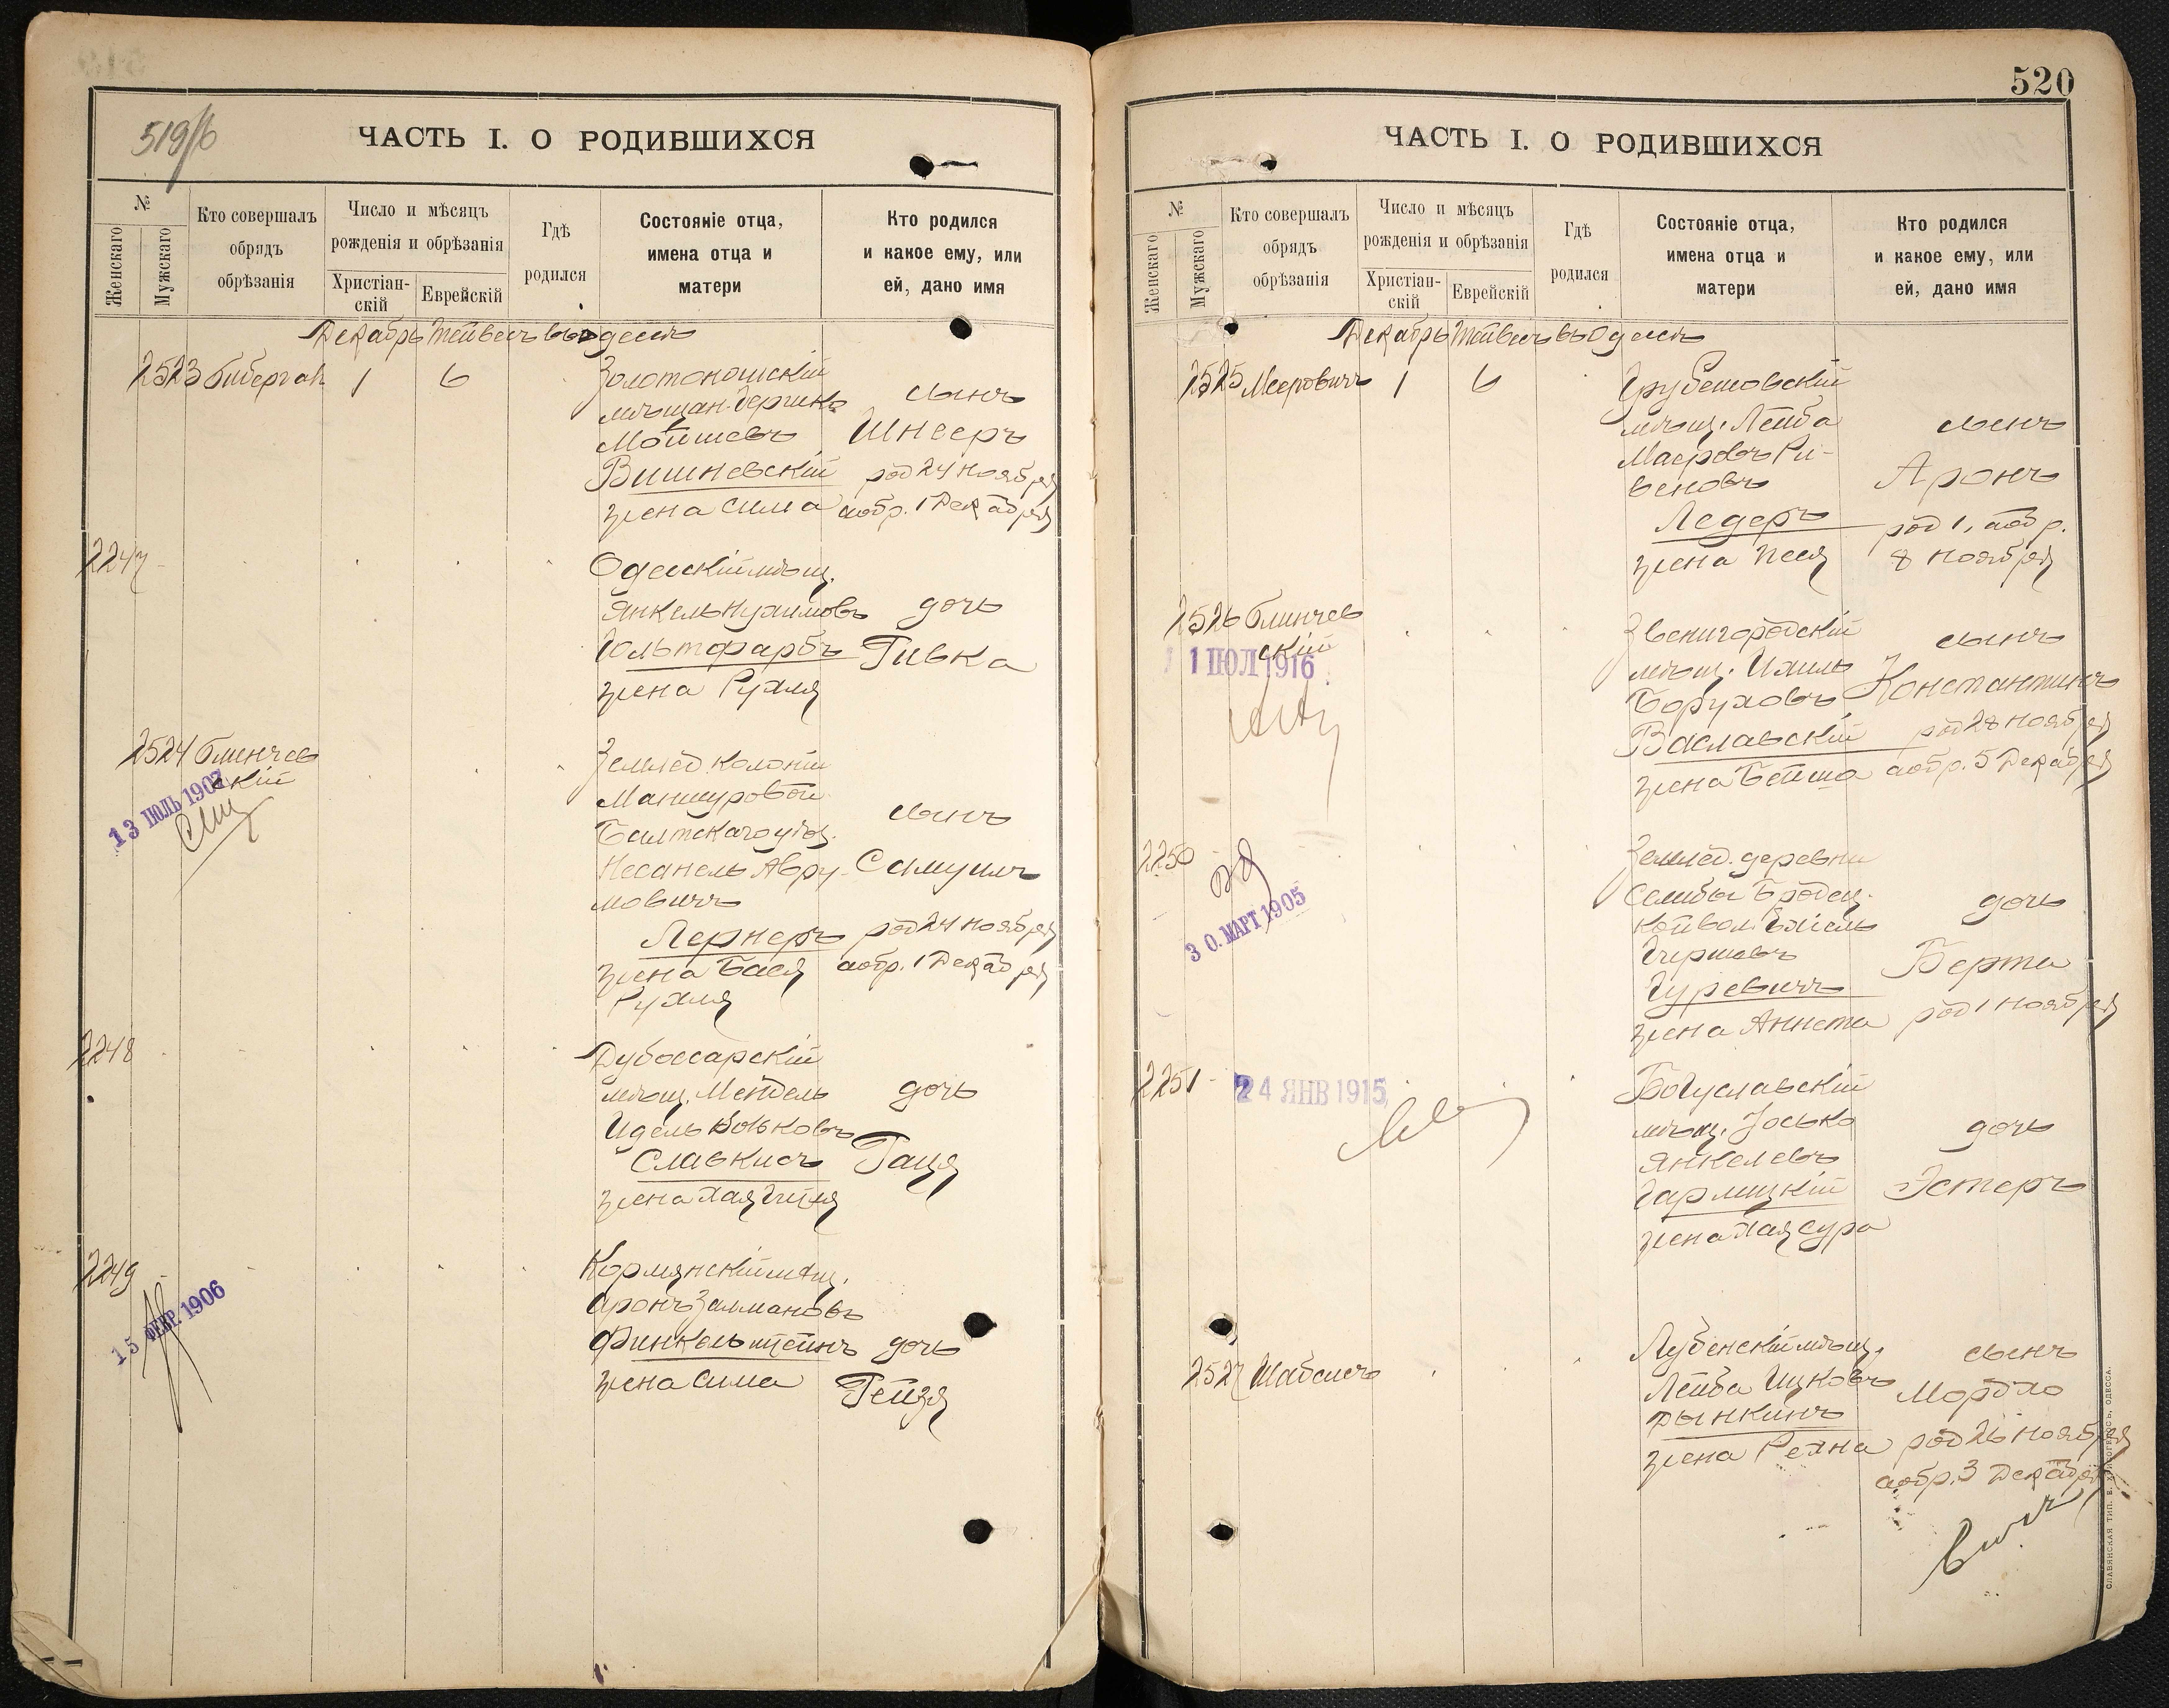 519/б
ЧАСТЬ I. О РОДИВШИХСЯ
№
Женскаго
Мужскаго
Кто совершалъ
обрядъ
обрѣзанія
Число и мѣсяцъ
рожденія и обрѣзанія
Христіан-
скій
Еврейскій
Гдѣ
родился
Состояніе отца,
имена отца и
матери
Кто родился
и какое ему, или
ей, дано имя
Декабрь Тейвесъ въ Одессѣ
2523 Бибергал 1 6
Золотоношскій
мѣщан. Берико
Мойшевъ
Вишневскій
жена Сима
сынъ
Шнееръ
род 24 ноября
а обр. 1 Декабря
2247
Одесскій мѣщ.
Янкель Нухимовъ
Гольтфарбъ
жена Рухля
дочь
Ривка
2524 Блинчев
скій
13 ІЮЛЬ 1907
Землед. колоніи
Маншуровой
Балтскаго уѣз.
Несанель Авру-
мовичъ
Лернеръ
жена Бася
Рухля
сынъ
Самуилъ
род 24 ноября
а обр. 1 Декабря
2248
Дубоссарскій
мѣщ. Мендель
Идель Вольковъ
Славкисъ
жена Хая Гитля
дочь
2249
15 ФЕВР. 1906
Кормянскій мѣщ.
Аронъ Залмановъ
Финкельштейнъ
жена Сима
дочь
Рейзя
520
ЧАСТЬ I. О РОДИВШИХСЯ
№
Женскаго
Мужскаго
Кто совершалъ
обрядъ
обрѣзанія
Число и мѣсяцъ
рожденія и обрѣзанія
Христіан-
скій
Еврейскій
Гдѣ
родился
Состояніе отца,
имена отца и
матери
Кто родился
и какое ему, или
ей, дано имя
Декабрь Тейвесъ въ Одессѣ
2525 Мееровичъ 1 6
Грубешовскій
мѣщ. Лейба
Маеровъ Ри-
веновъ
Ледеръ
жена Песя
сынъ
Аронъ
род 1, а обр.
8 ноября
2526 Блинчев
скій
11 ІЮЛ 1916
Звенигородскій
мѣщ. Ихиль
Боруховъ
Ваславскій
жена Бейла
сынъ
Константинъ
род 28 ноября
а обр. 5 Декабря
2250
30. МАРТ 1905
Землед. деревни
Бродец-
кой вол.
Гершовъ
Гуревичъ
жена Аннета
дочь
Берта
род 1 ноября
2251
24 ЯНВ 1915
Богуславскій
мѣщ. Іосько
Янкелевъ
Гармицкій
жена Хая Сура
дочь
Эстеръ
2527 Шабсисъ
Лубенскій мѣщ.
Лейба Ицковъ
Рынкинъ
жена Рехна
сынъ
Мордхо
род 26 ноября
а обр. 3 Декабря
СЛАВЯНСКАЯ ТИП. Е. ХРИСОГЕЛОСЪ, ОДЕССА.